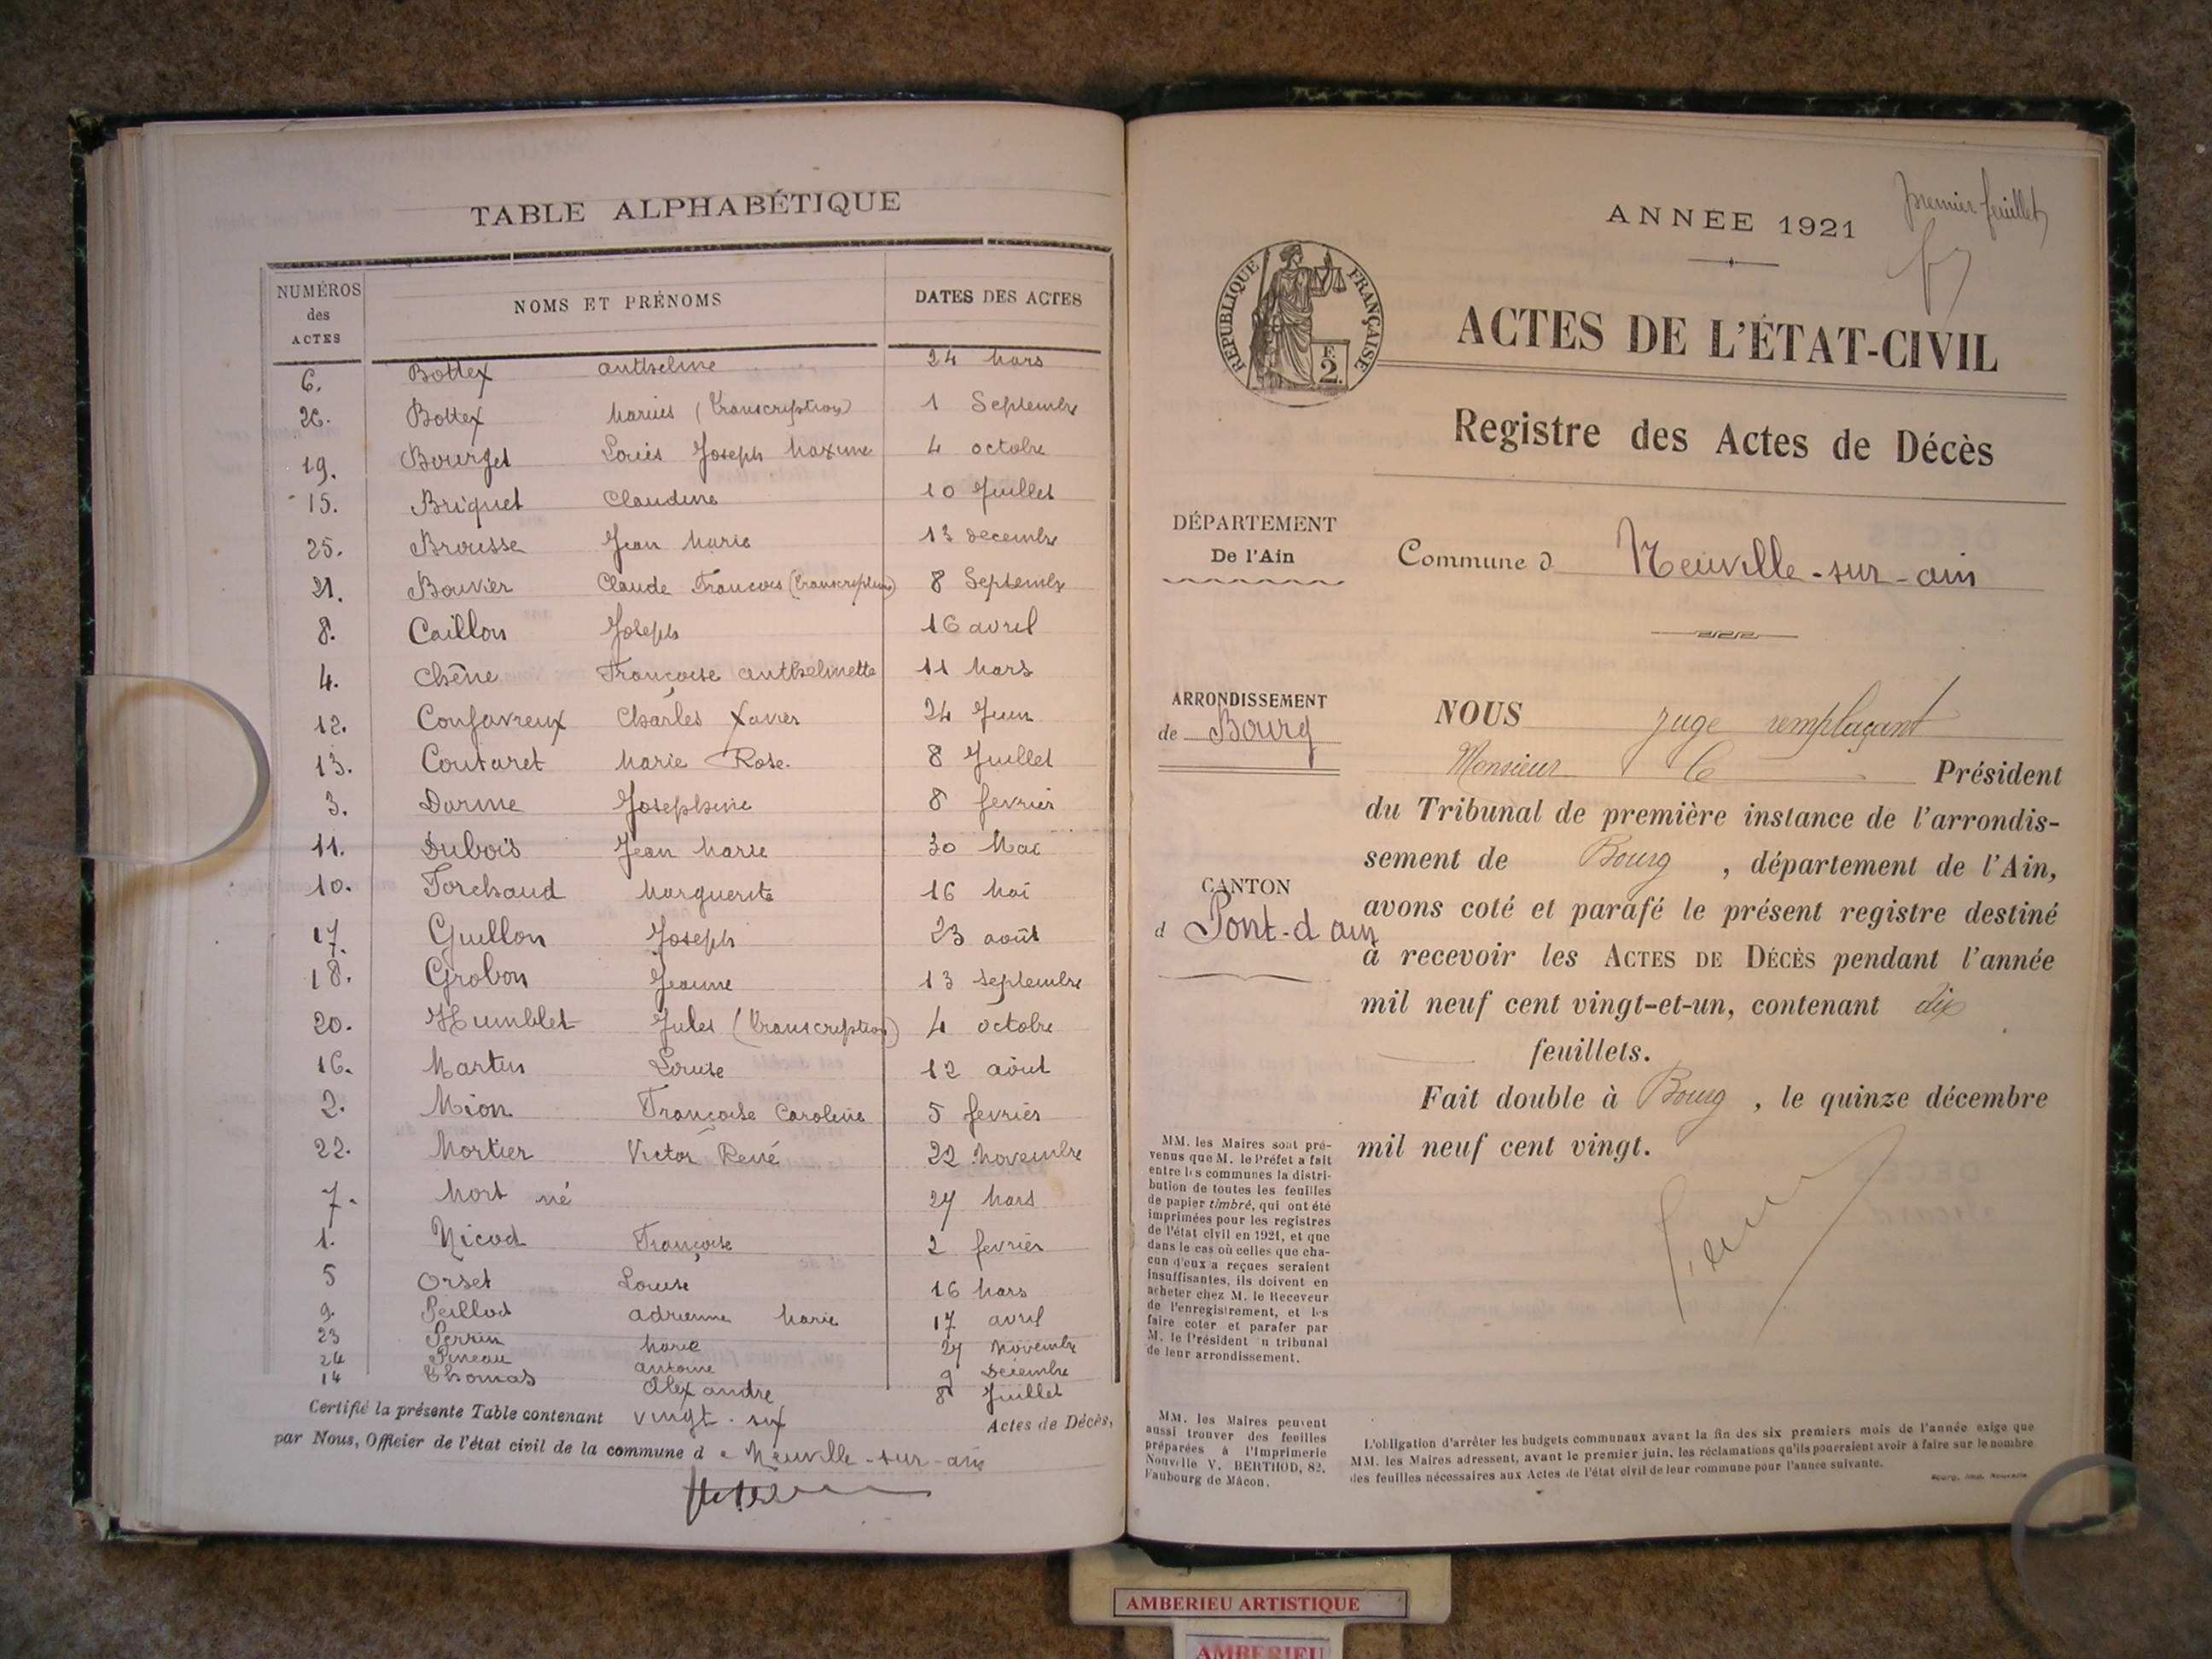 TABLE ALPHABÉTIQUE
NUMÉROS des ACTES NOMS ET PRÉNOMS DATES DES ACTES
6. Bottex anthelme 24 Mars
26. Bottex Marius (transcription) 1 Septembre
19. Bourget Louis Joseph Maxime 4 octobre
15. Briquet Claudine 10 Juillet
25. Brousse Jean Marie 13 decembre
21. Bouvier Claude Francois (transcription) 8 Septembre
8. Caillon Joseph 16 avril
4. Chêne Françoise anthelmette 11 Mars
12. Confavreux Charles Xavier 24 Juin
13. Coutaret Marie Rose. 8 Juillet
3. Darme Josephine 8 fevrier
11. Dubois Jean Marie 30 Mai
10. Forchaud Marguerite 16 Mai
17. Guillon Joseph 23 août
18. Grobon Jeanne 13 septembre
20. Humblet Jules (transcription) 4 octobre
16. Martin Louise 12 août
2. Mion Françoise Caroline 5 fevrier
22. Mortier Victor René 22 Novembre
7. Mort né 27 Mars
1. Nicod Françoise 2 fevrier
5 Orset Louise 16 Mars
9. Peillod adrienne Marie 17 avril
23 Perrin Marie 27 Novembre
24 Pineau antoine 9 Decembre
14 Thomas Alexandre 8 Juillet
Certifié la présente Table contenant vingt-six Actes de Décès,
par Nous, Officier de l'état civil de la commune d e Neuville-sur-ain
premier feuillet
ANNÉE 1921
RÉPUBLIQUE FRANÇAISE
F. 2.
ACTES DE L'ÉTAT-CIVIL
Registre des Actes de Décès
DÉPARTEMENT
De l'Ain
Commune d Neuville-sur-ain
ARRONDISSEMENT
de Bourg
CANTON
d Pont-d ain
NOUS juge remplaçant
Monsieur le Président
du Tribunal de première instance de l'arrondis-
sement de Bourg, département de l'Ain,
avons coté et parafé le présent registre destiné
à recevoir les ACTES DE DÉCÈS pendant l'année
mil neuf cent vingt-et-un, contenant dix
feuillets.
Fait double à Bourg, le quinze décembre
mil neuf cent vingt.
MM. les Maires sont pré-
venus que M. le Préfet a fait
entre les communes la distri-
bution de toutes les feuilles
de papier timbré, qui ont été
imprimées pour les registres
de l'état civil en 1921, et que
dans le cas où celles que cha-
cun d'eux a reçues seraient
insuffisantes, ils doivent en
acheter chez M. le Receveur
de l'enregistrement, et les
faire coter et parafer par
M. le Président du tribunal
de leur arrondissement.
MM. les Maires peuvent
aussi trouver des feuilles
préparées à l'Imprimerie
Nouvelle V. BERTHOD, 82,
Faubourg de Mâcon.
L'obligation d'arrêter les budgets communaux avant la fin des six premiers mois de l'année exige que
MM. les Maires adressent, avant le premier juin, les réclamations qu'ils pourraient avoir à faire sur le nombre
des feuilles nécessaires aux Actes de l'état civil de leur commune pour l'année suivante.
Bourg, Imp. Nouvelle
AMBERIEU ARTISTIQUE
AMBERIEU